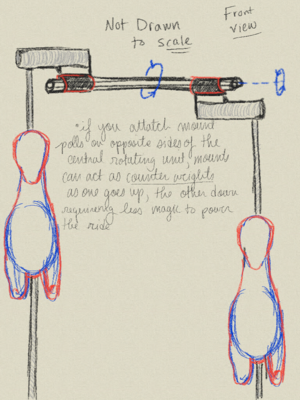 Not Drawn
to scale
Front
view
*if you attatch mount
polls on opposite sides of the
central rotating unit, mounts
can act as counter weights
as one goes up, the other down
requiering less magic to power
the ride